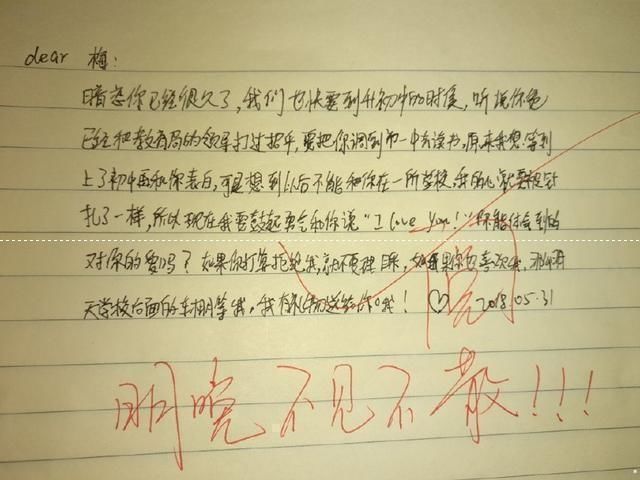 dear 梅:
暗恋你已经很久了,我们也快要到升初中的时候,听说你爸
已经和教育局的领导打过招乎,要把你调到市一中去读书,原来我想等到
上了初中再和你表白,可是想到以后不能和你在一所学校,我的心就要被针
扎了一样,所以现在我要鼓起勇气和你说“I love you!”你能体会到的
对你的爱吗?如果你打算拒绝我,就不要理睬,如果你也喜欢我,
天学校后面的车棚等我,我有礼物送给你哦! ♡ 2018.05.31
阅
明晚不见不散!!!